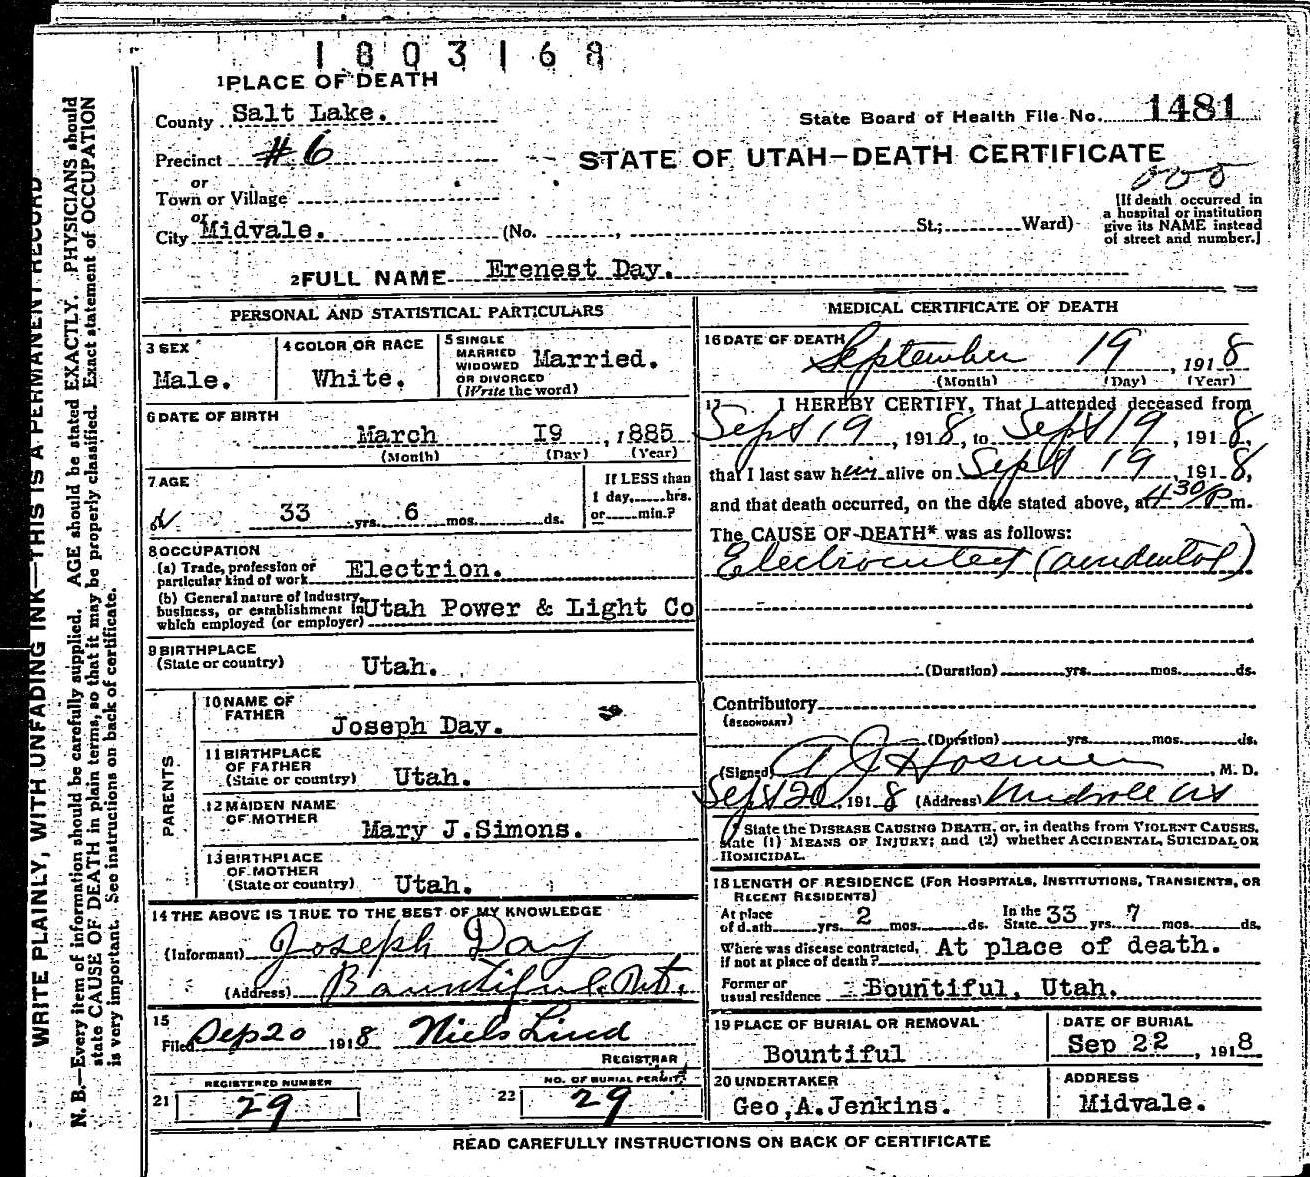 1803168
1 PLACE OF DEATH
County Salt Lake.
State Board of Health File No. 1481
Precinct #6
STATE OF UTAH—DEATH CERTIFICATE
or
Town or Village
000
or
City Midvale. (No. , St.; Ward)
[If death occurred in
a hospital or institution
give its NAME instead
of street and number.]
2 FULL NAME Erenest Day.
PERSONAL AND STATISTICAL PARTICULARS
3 SEX
Male.
4 COLOR OR RACE
White.
5 SINGLE
MARRIED
WIDOWED
OR DIVORCED
(Write the word)
Married.
6 DATE OF BIRTH
March I9, 1885
(Month) (Day) (Year)
7 AGE
33 yrs. 6 mos. ds.
If LESS than
1 day, hrs.
or min.?
8 OCCUPATION
(a) Trade, profession or
particular kind of work Electrion.
(b) General nature of Industry,
business, or establishment in
which employed (or employer) Utah Power & Light Co
9 BIRTHPLACE
(State or country) Utah.
PARENTS
10 NAME OF
FATHER
Joseph Day.
11 BIRTHPLACE
OF FATHER
(State or country) Utah.
12 MAIDEN NAME
OF MOTHER
Mary J.Simons.
13 BIRTHPLACE
OF MOTHER
(State or country) Utah.
14 THE ABOVE IS TRUE TO THE BEST OF MY KNOWLEDGE
(Informant) Joseph Day
(Address) Bountiful. Ut.
15
Filed Sep 20 1918 Niels Lind
REGISTRAR
21 REGISTERED NUMBER
29
22 NO. OF BURIAL PERMIT
29
MEDICAL CERTIFICATE OF DEATH
16 DATE OF DEATH
September 19, 1918
(Month) (Day) (Year)
17 I HEREBY CERTIFY, That I attended deceased from
Sept 19, 1918, to Sept 19, 1918,
that I last saw him alive on Sept 19 1918,
and that death occurred, on the date stated above, at 4 30/P m.
The CAUSE OF DEATH* was as follows:
Electrocuted (accidental)
(Duration) yrs. mos. ds.
Contributory
(SECONDARY)
(Duration) yrs. mos. ds.
(Signed) Hosmer, M. D.
Sept 20, 1918 (Address) Midvale Ut
* State the DISEASE CAUSING DEATH, or, in deaths from VIOLENT CAUSES,
state (1) MEANS OF INJURY; and (2) whether ACCIDENTAL, SUICIDAL OR
HOMICIDAL.
18 LENGTH OF RESIDENCE (FOR HOSPITALS, INSTITUTIONS, TRANSIENTS, OR
RECENT RESIDENTS)
At place
of death yrs. 2 mos. ds. In the
State 33 yrs. 7 mos. ds.
Where was disease contracted,
if not at place of death? At place of death.
Former or
usual residence Bountiful, Utah.
19 PLACE OF BURIAL OR REMOVAL
Bountiful
DATE OF BURIAL
Sep 22, 1918
20 UNDERTAKER
Geo,A.Jenkins.
ADDRESS
Midvale.
READ CAREFULLY INSTRUCTIONS ON BACK OF CERTIFICATE
WRITE PLAINLY, WITH UNFADING INK—THIS IS A PERMANENT RECORD
N. B.—Every item of information should be carefully supplied. AGE should be stated EXACTLY. PHYSICIANS should
state CAUSE OF DEATH in plain terms, so that it may be properly classified. Exact statement of OCCUPATION
is very important. See instructions on back of certificate.